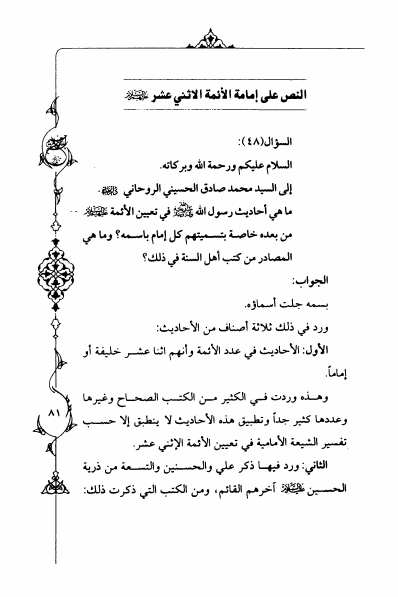 النص على إمامة الأئمة الاثني عشر عليهم السلام
السؤال(٤٨):
السلام عليكم ورحمة الله وبركاته.
إلى السيد محمد صادق الحسيني الروحاني
ما هي أحاديث رسول الله ﷺ في تعيين الأئمة عليهم السلام
من بعده خاصة بتسميتهم كل إمام باسمه؟ وما هي
المصادر من كتب أهل السنة في ذلك؟
الجواب:
بسمه جلت أسماؤه.
ورد في ذلك ثلاثة أصناف من الأحاديث:
الأول: الأحاديث في عدد الأئمة وأنهم اثنا عشر خليفة أو
إماماً.
وهذه وردت في الكثير من الكتب الصحاح وغيرها
وعددها كثير جداً وتطبيق هذه الأحاديث لا ينطبق إلا حسب
تفسير الشيعة الأمامية في تعيين الأئمة الإثني عشر.
الثاني: ورد فيها ذكر علي والحسنين والتسعة من ذرية
الحسين عليه السلام آخرهم القائم، ومن الكتب التي ذكرت ذلك:
٨١